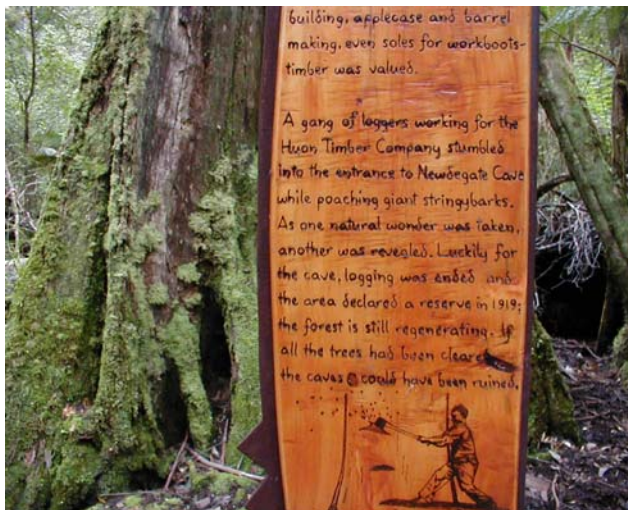 building, applecase and barrel
making, even soles for workboots-
timber was valued.
A gang of loggers working for the
Huon Timber Company stumbled
into the entrance to Newdegate Cave
while poaching giant stringybarks.
As one natural wonder was taken,
another was revealed. Luckily for
the cave, logging was ended and
the area declared a reserve in 1919;
the forest is still regenerating. If
all the trees had been cleared
the caves could have been ruined.